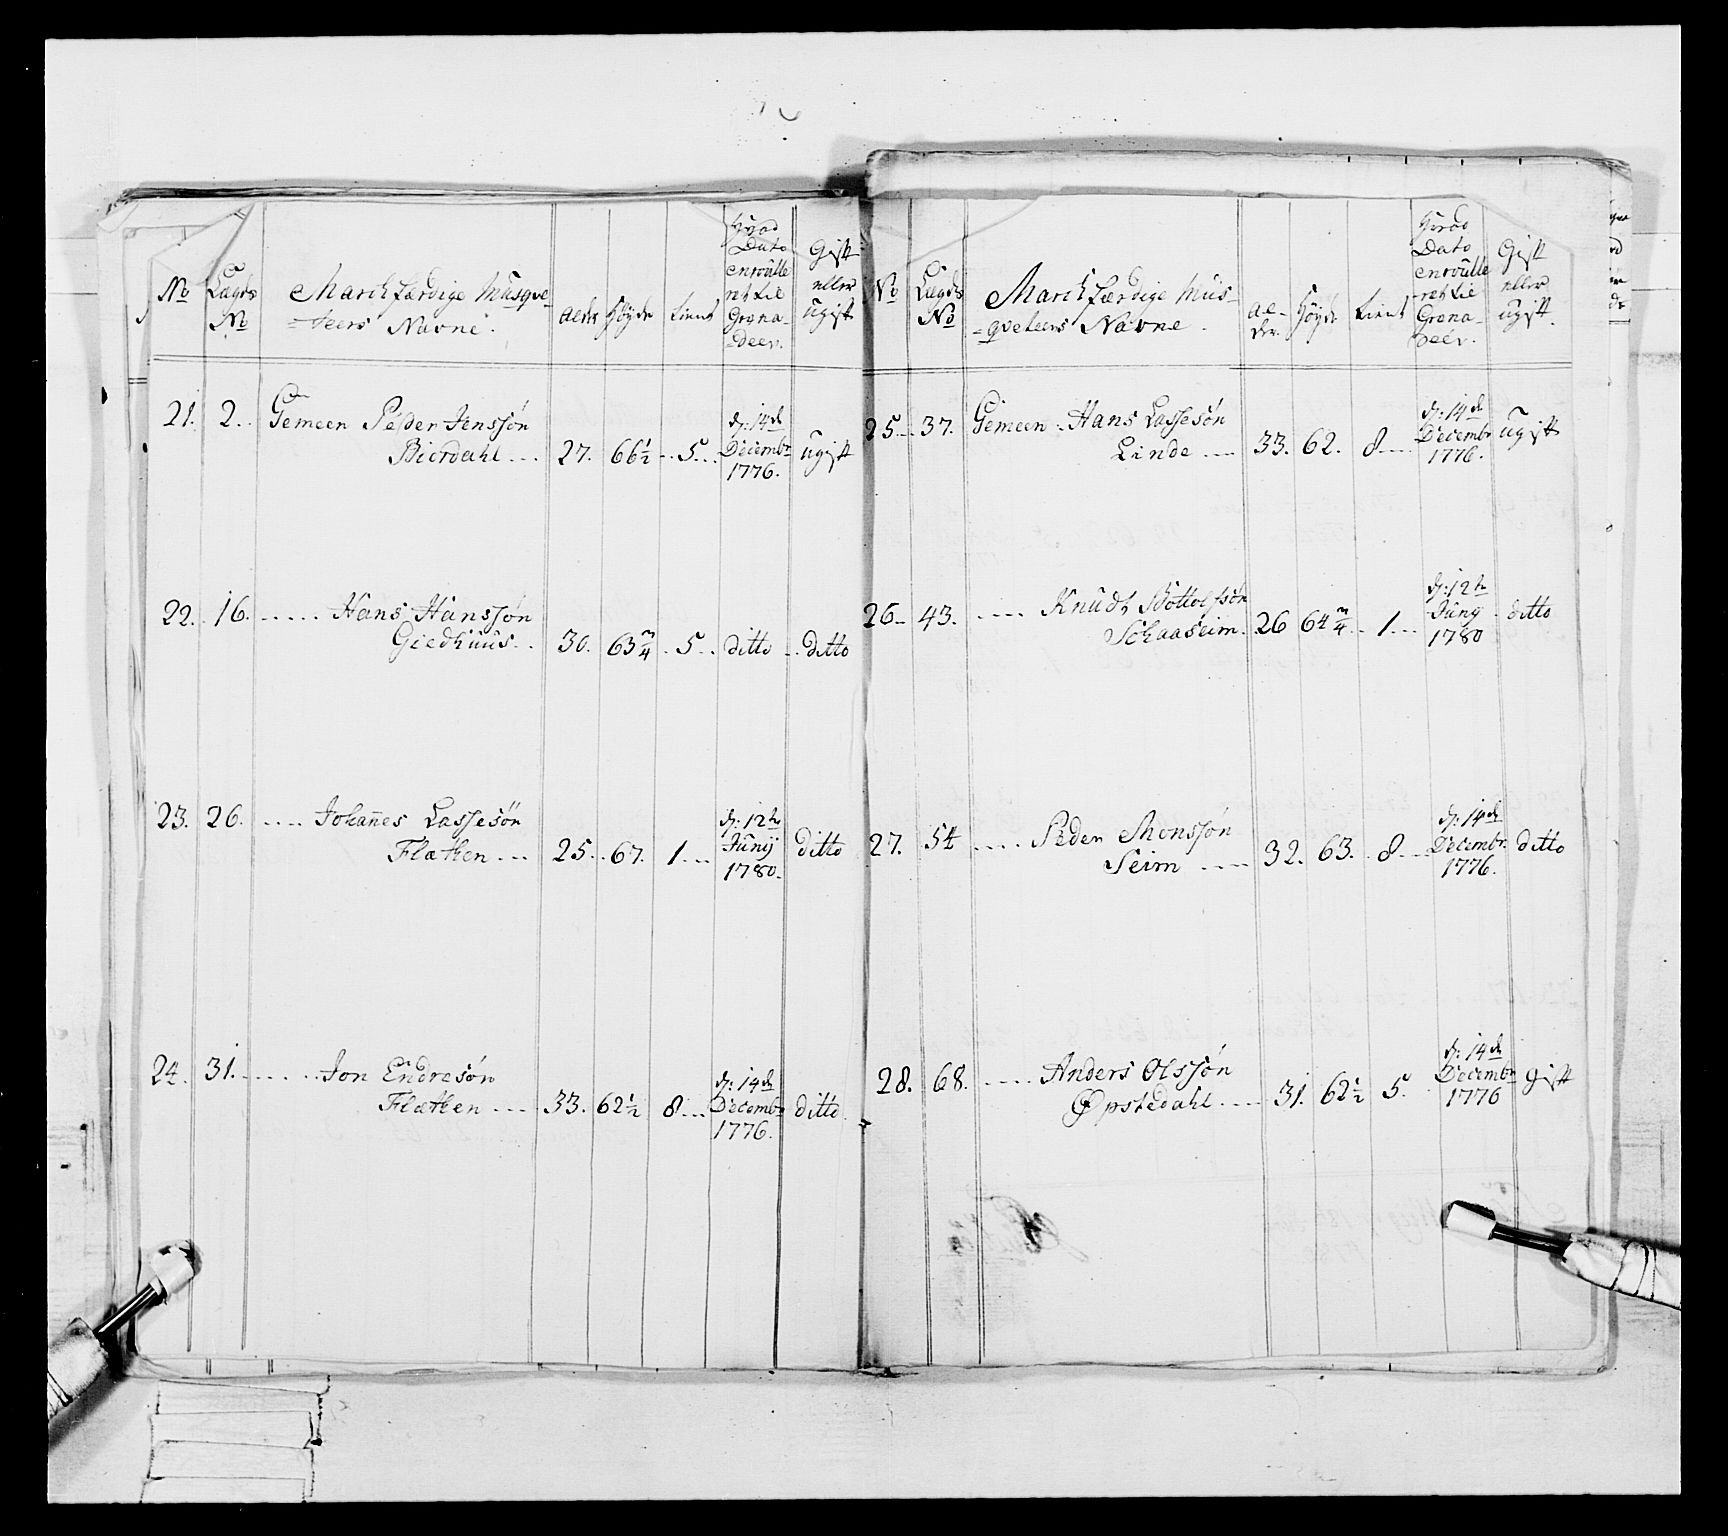 No Lægds No Marchfærdige Musqve-
=teers Navne. Alder Høyde tient Hvad Dato enroulleret til Grenadeer. Gift eller ugift
21. 2. Gemeen Peder Jenssøn
Bierdahl ... 27. 66½ .. 5... d: 14de Decembr 1776. ugift
22. 16. ..... Hans Hanssøn
Giedhuus. . 30. 63¾ . 5.. ditto .. ditto
23. 26. .... Johañes Lassesøn
Flatten ... 25. . 67. 1... d: 12te Junij 1780. ditto
24. 31. ...... Jon Endresøn
Flatten .... 33. 62½ 8... d: 14de Decembr 1776. ditto.
No Lægds No Marchfærdige Mus-
=qveteers Navne. Al-der. Høyde tient Hvad Dato enroulle-ret til Grena-deer. Gift eller ugift.
25... 37. Gemeen. Hans Lassesøn
Linde .... 33. 62. 8.... d: 14de Decembr 1776. ugift
26.. 43. .... Knudt Bottolfsøn
Schaaseim. 26 64¾. . 1... d: 12te Juny 1780 . ditto
27. 54 ..... Peder Monssøn
Seim .... 32. 63. . 8.... d: 14de Decembr. 1776. ditto
28. 68. .... Anders Olssøn
Øpstedahl .... 31. 62½ 5. d: 14de Decembr 1776 gift